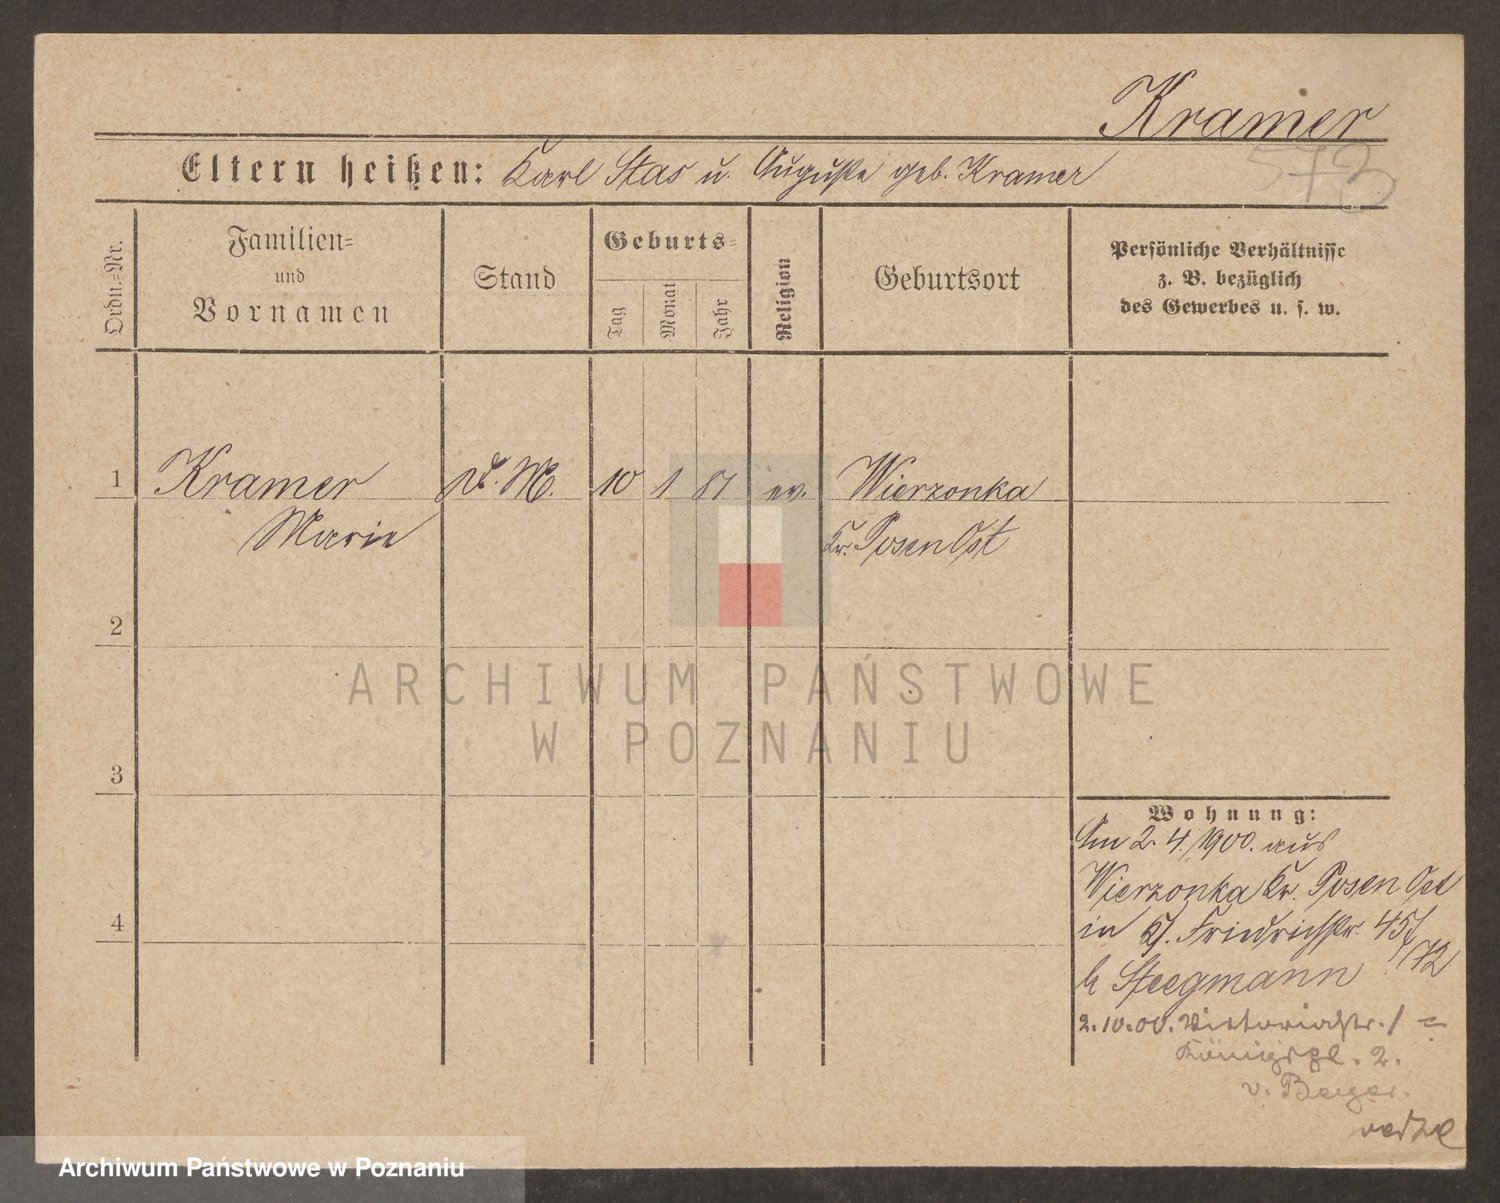 Kramer
573
Eltern heißen: Karl Stas u. Auguste geb. Kramer
Ordn.-Nr.
Familien-
und
Vornamen
Stand
Geburts-
Tag
Monat
Jahr
Religion
Geburtsort
Persönliche Verhältnisse
z. B. bezüglich
des Gewerbes u. s. w.
1 Kramer D. M. 10 1 81 ev. Wierzonka
Marie Kr. Posen Ost
2
3
4
ARCHIWUM PAŃSTWOWE
W POZNANIU
Wohnung:
Am 2. 4. 1900. aus
Wierzonka Kr. Posen Ost
in Kl. Friedrichstr. 45/
72
b Steegmann
2.10.00. Victoriastr. 1 =
Königspl. 2.
v. Beyer.
Archiwum Państwowe w Poznaniu